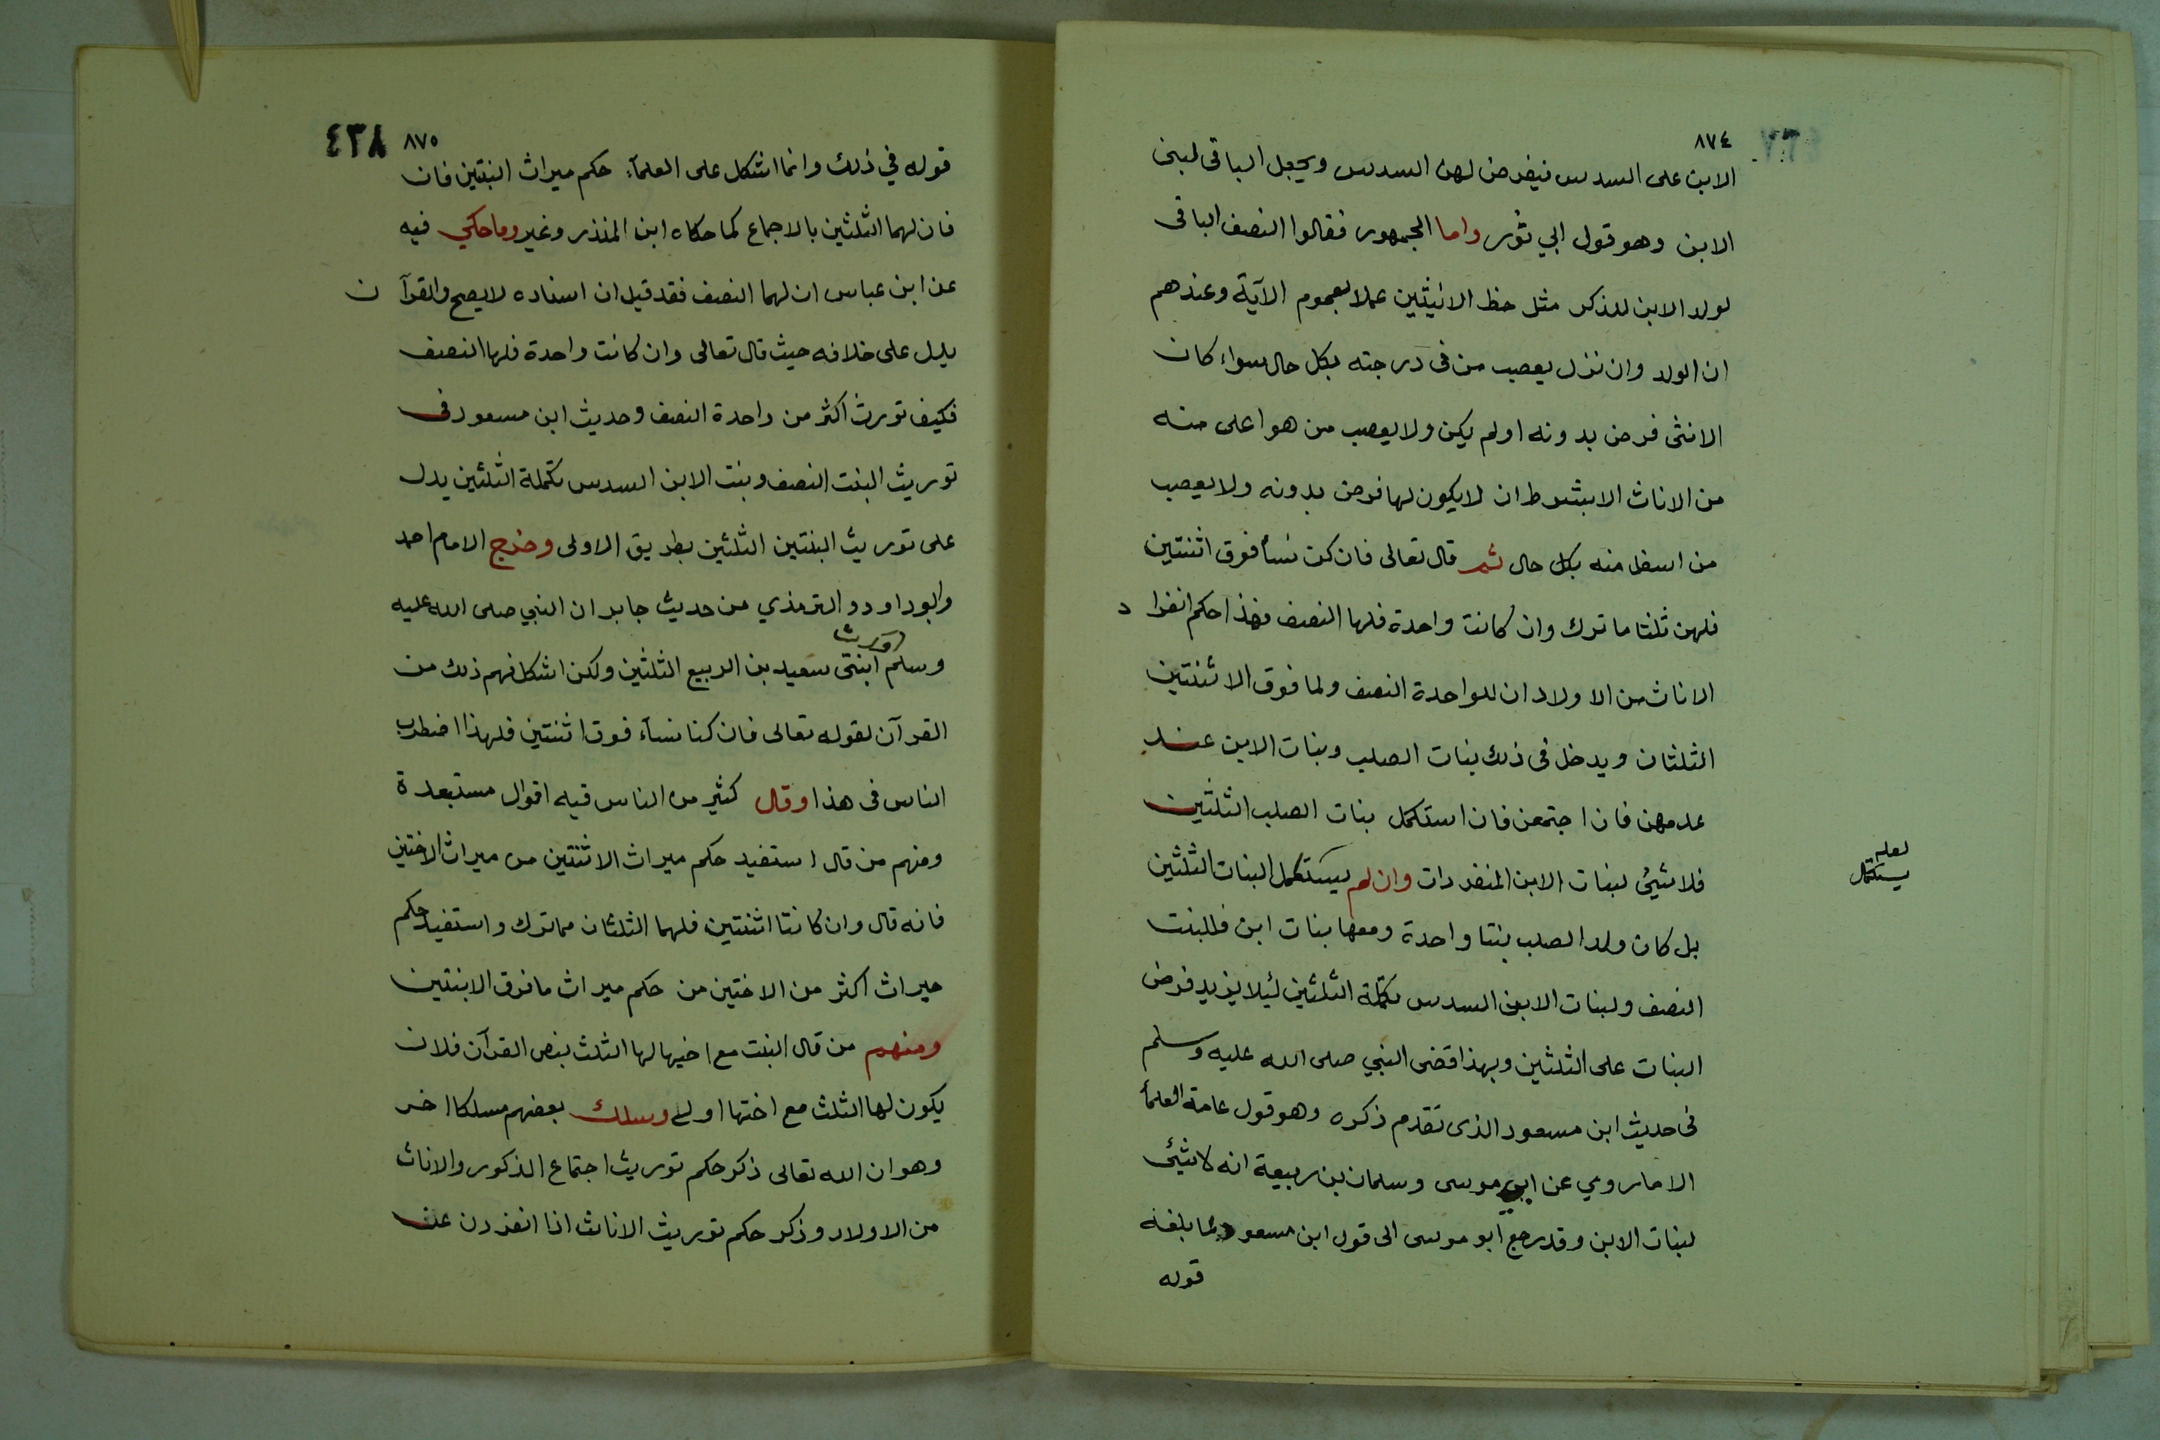 ٨٧٤
الابن على السدس فيفرض لهن السدس ويجعل الباقي لبني
الابن وهو قول ابي ثور واما الجمهور فقالوا النصف الباقي
لولد الابن للذكر مثل حظ الانثيين عملا بعموم الآية وعندهم
ان الولد وان نزل يعصب من في درجته بكل حال سواء كان
الانثى فرض بدونه اولم يكن ولا يعصب من هو اعلى منه
من الاناث الا بشرط ان لا يكون لها فرض بدونه ولا يعصب
من اسفل منه بكل حال ثم قال تعالى فان كن نسأ فوق اثنتين
فلهن ثلثا ما ترك وان كانت واحدة فلها النصف فهذا حكم انفرا د
الاناث من الاولاد ان للواحدة النصف ولما فوق الاثنتين
الثلثان ويدخل في ذلك بنات الصلب وبنات الابن عند
عدمهن فان اجتمعن فان استكمل بنات الصلب الثلثين
فلا شيئ لبنات الابن المنفردات وان لم يستكمل البنات الثلثين
لعله
يستكمل
بل كان ولد الصلب بنتا واحدة ومعها بنات ابن فللبنت
النصف ولبنات الابن السدس تكملة الثلثين ليلا يزيد فرض
البنات على الثلثين وبهذا قضى النبي صلى الله عليه وسلم
في حديث ابن مسعود الذى تقدم ذكره وهو قول عامة العلمأ
الا ما روي عن ابي موسى وسلمان بن ربيعة انه لا شيئ
لبنات الابن وقد رجع ابو موسى الى قول ابن مسعود لما بلغه
قوله
٨٧٥
٤٣٨
قوله في ذلك وانما اشكل على العلمآء حكم ميراث البنتين فان
فان لهما الثلثين بالاجماع كما حكاه ابن المنذر وغير وما حكي فيه
عن ابن عباس ان لهما النصف فقد قيل ان اسناده لا يصح والقرآ ن
يدل على خلافه حيث قال تعالى وان كانت واحدة فلها النصف
فكيف تورث اكثر من واحدة النصف وحديث ابن مسعود في
توريث البنت النصف وبنت الابن السدس تكملة الثلثين يدل
على توريث البنتين الثلثين بطريق الاولى وخرج الامام احمد
وابوداود والترمذي من حديث جابر ان النبي صلى الله عليه
وسلم اورث ابنتي سعيد بن الربيع الثلثين ولكن اشكل فهم ذلك من
القرآن لقوله تعالى فان كنا نسآء فوق اثنتين فلهذا اضطرب
الناس في هذا وقال كثير من الناس فيه اقوال مستبعدة
ومنهم من قال استفيد حكم ميراث الاثنتين من ميراث الاختين
فانه قال وان كانتا اثنتين فلهما الثلثان مما ترك واستفيد حكم
ميراث اكثر من الاختين من حكم ميراث ما فوق الابنتين
ومنهم من قال البنت مع اخيها لها الثلث بنص القرآن فلان
يكون لها الثلث مع اختها اولى وسلك بعضهم مسلكا اخر
وهو ان الله تعالى ذكر حكم توريث اجتماع الذكور والاناث
من الاولاد وذكر حكم توريث الاناث اذا انفردن عن